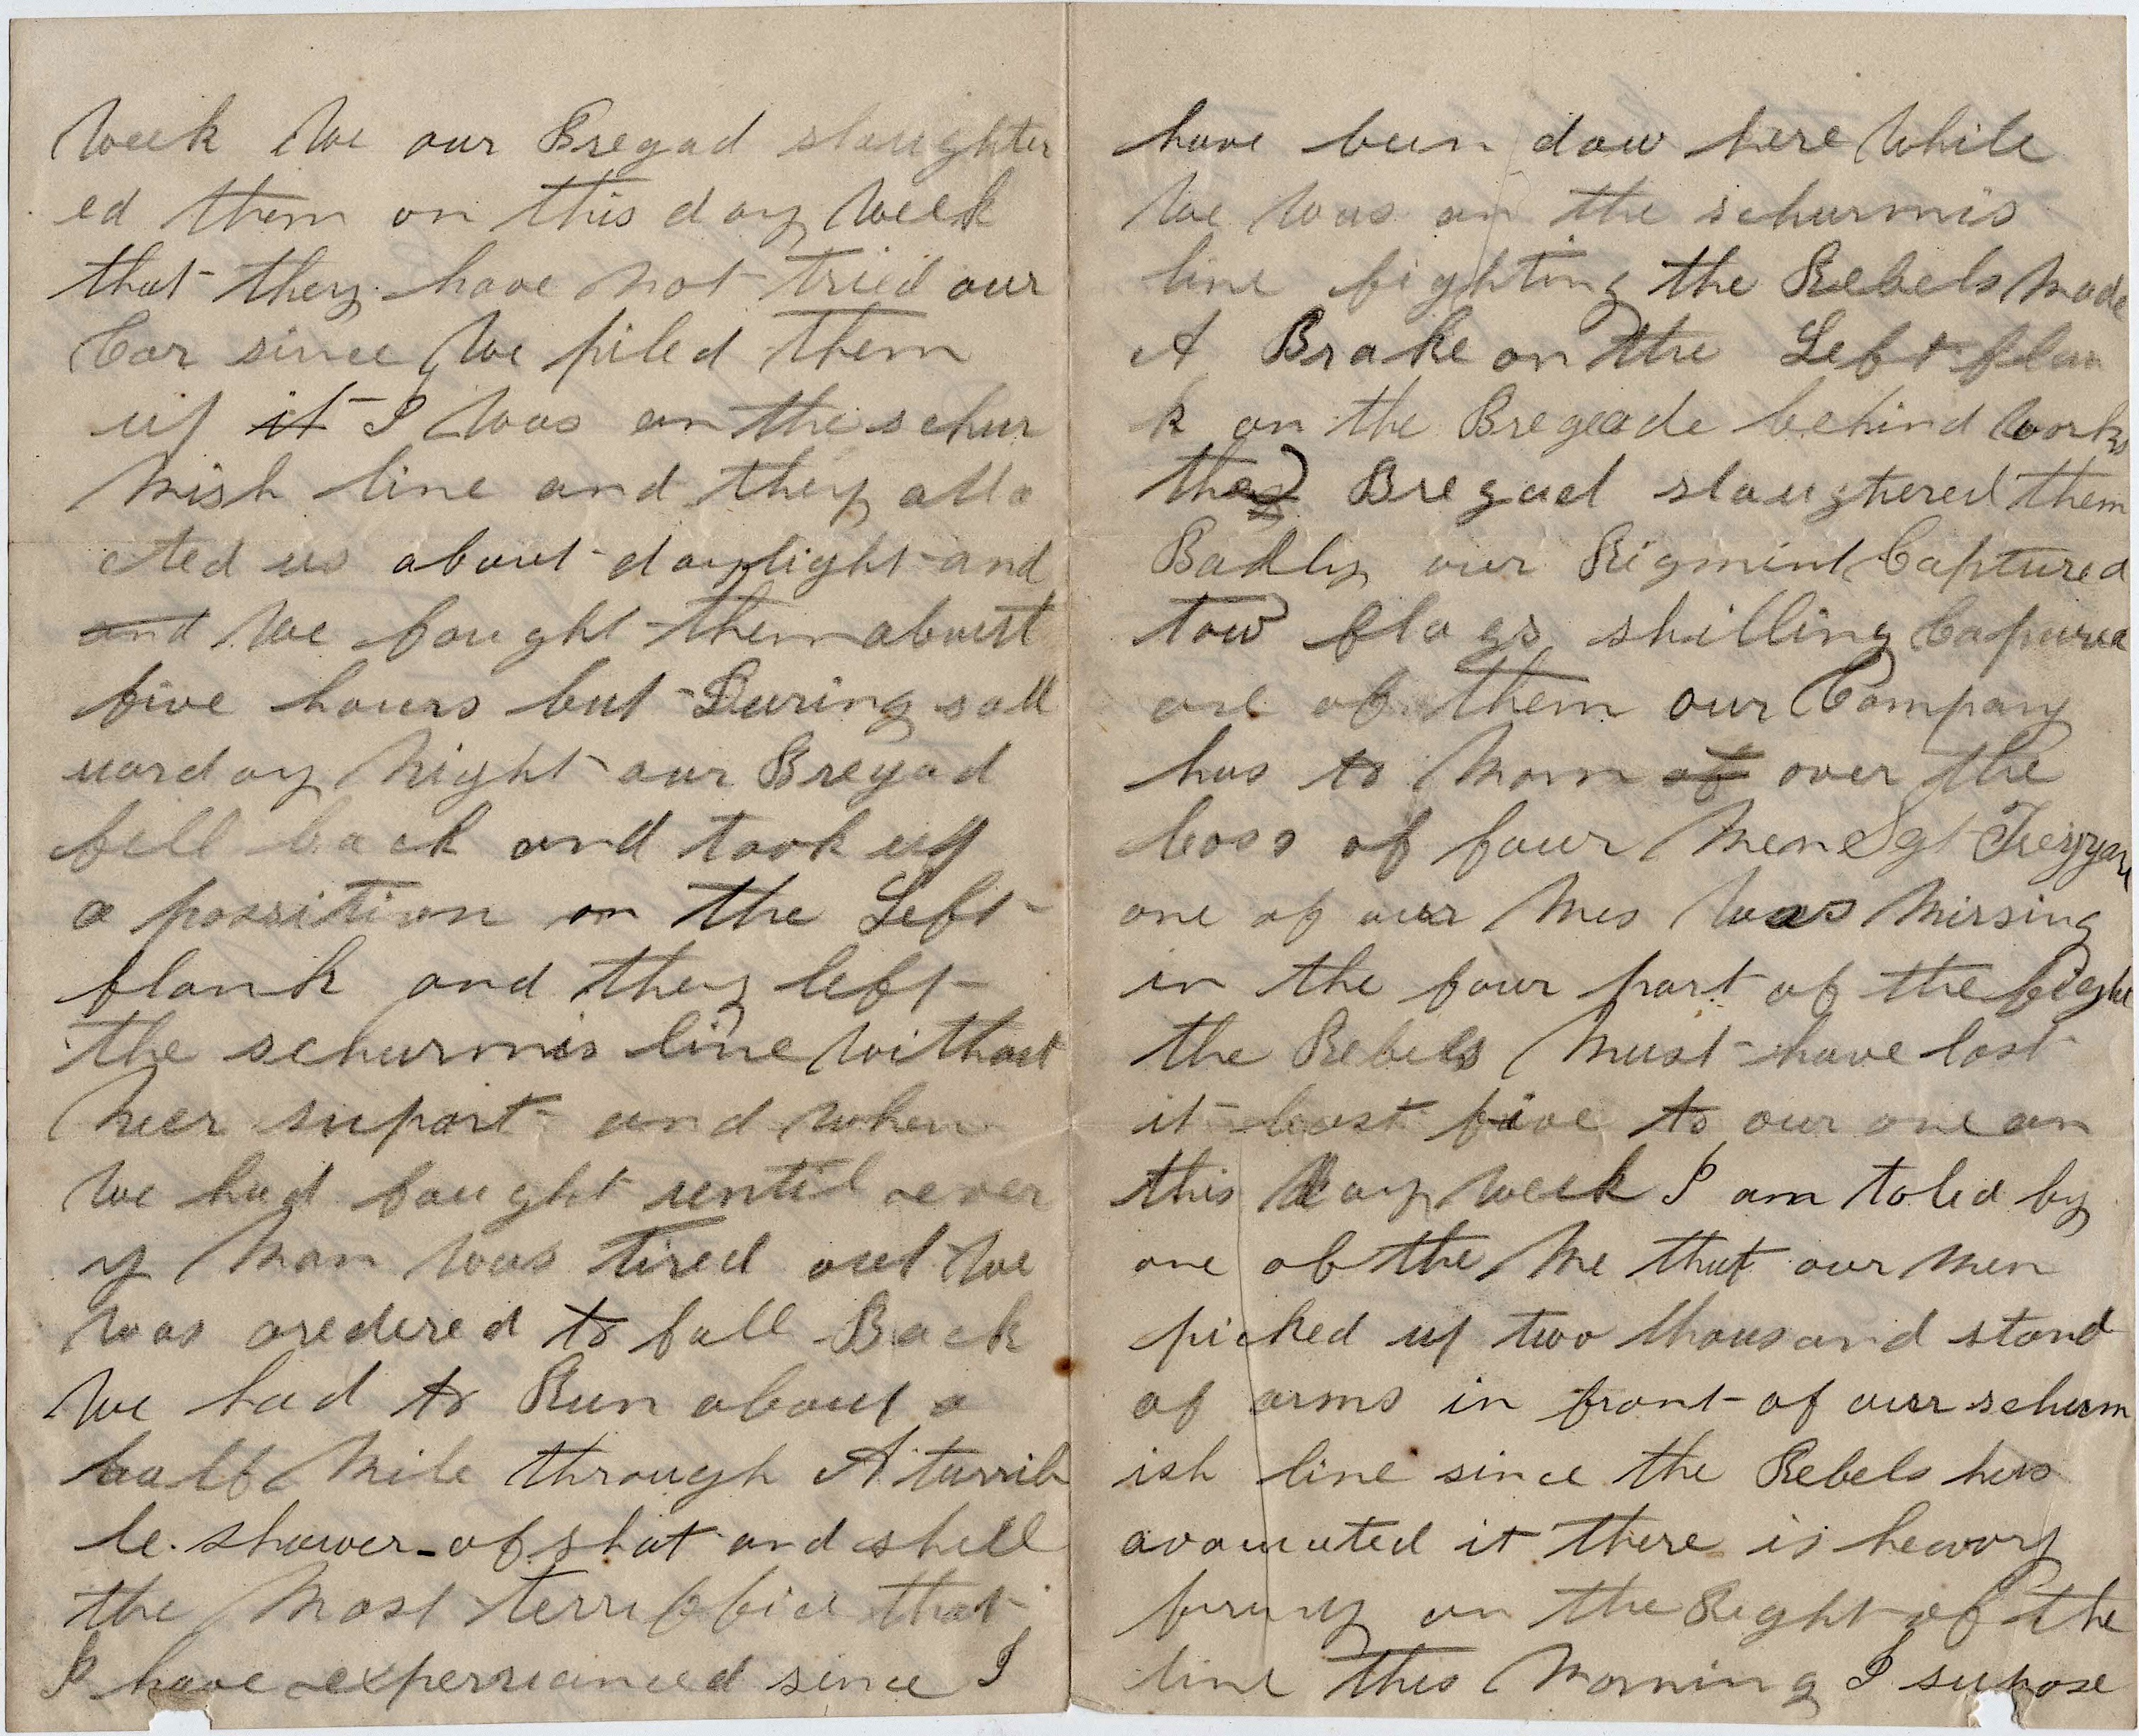 Week We our Bregad slaughter
ed them on this day Week
that they have not tried our
Cor since We piled them
up it I Was on the schur
mish line and they atta
cted us about daylight and
and We fought them about
five hours but During satt
uarday Night our Bregad
fell back and took up
a possition on the Left
flank and they left
the schurmis line Without
neer suport and when
We had fought until ever
y Man Was tired out We
was oredered to fall Back
We had to Run about a
half Mile through A turrib
le shower of shot and shell
the Most terriffid that
I have experrianced since I
have been dow here While
We Was on the schurmis
line fighting the Rebels Made
A Brake on the Left flan
k on the Bregeade behind works
the Bregad slaughtered them
Badly our Rigmint Captured
tow flags shilling Capured
one of them our Company
has to Morn of over the
loss of four Men Sgt
one of our Mes Was Missing
in the four part of the fight
the Rebels Must have lost
it least five to our one on
this Day Week I am toled by
one of the Me that our Men
picked up two thousand stand
of arms in front of our schurm
ish line since the Rebels has
avacuated it there is heavy
firing on the Right of the
line this Morning I supose